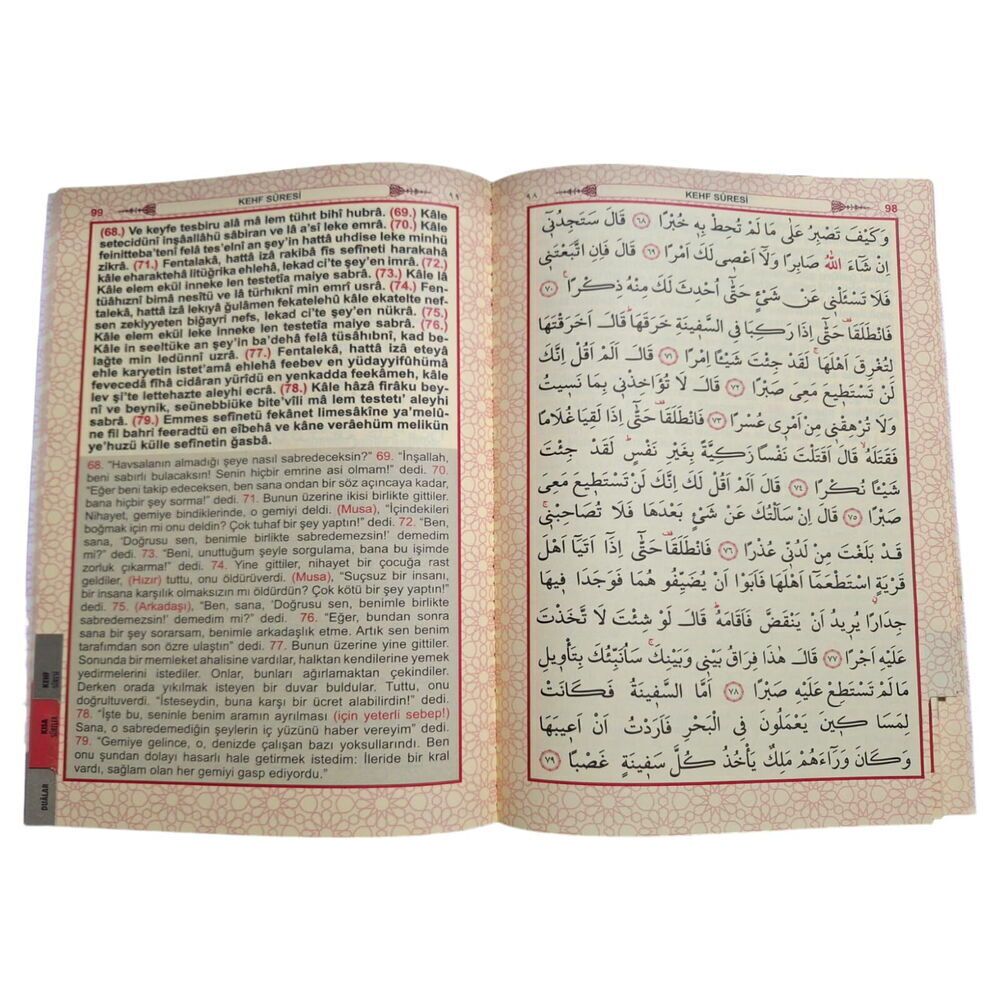 ٩٨ KEHF SÛRESİ 98
وَكَيْفَ تَصْبِرُ عَلٰى مَا لَمْ تُحِطْ بِهٖ خُبْرًا ﴿٦٨﴾ قَالَ سَتَجِدُنٖٓي
اِنْ شَٓاءَ اللّٰهُ صَابِرًا وَلَٓا اَعْصٖي لَكَ اَمْرًا ﴿٦٩﴾ قَالَ فَاِنِ اتَّبَعْتَنٖي
فَلَا تَسْـَٔلْنٖي عَنْ شَيْءٍ حَتّٰٓى اُحْدِثَ لَكَ مِنْهُ ذِكْرًاۚ ﴿٧٠﴾
فَانْطَلَقَا۠ حَتّٰٓى اِذَا رَكِبَا فِي السَّفٖينَةِ خَرَقَهَاۜ قَالَ اَخَرَقْتَهَا
لِتُغْرِقَ اَهْلَهَاۚ لَقَدْ جِئْتَ شَيْـًٔا اِمْرًا ﴿٧١﴾ قَالَ اَلَمْ اَقُلْ اِنَّكَ
لَنْ تَسْتَطٖيعَ مَعِيَ صَبْرًا ﴿٧٢﴾ قَالَ لَا تُؤَاخِذْنٖي بِمَا نَسٖيتُ
وَلَا تُرْهِقْنٖي مِنْ اَمْرٖي عُسْرًا ﴿٧٣﴾ فَانْطَلَقَا۠ حَتّٰٓى اِذَا لَقِيَا غُلَامًا
فَقَتَلَهُۙ قَالَ اَقَتَلْتَ نَفْسًا زَكِيَّةً بِغَيْرِ نَفْسٍۜ لَقَدْ جِئْتَ
شَيْـًٔا نُكْرًا ﴿٧٤﴾ قَالَ اَلَمْ اَقُلْ لَكَ اِنَّكَ لَنْ تَسْتَطٖيعَ مَعِيَ
صَبْرًا ﴿٧٥﴾ قَالَ اِنْ سَاَلْتُكَ عَنْ شَيْءٍ بَعْدَهَا فَلَا تُصَاحِبْنٖيۚ
قَدْ بَلَغْتَ مِنْ لَدُنّٖي عُذْرًا ﴿٧٦﴾ فَانْطَلَقَا۠ حَتّٰٓى اِذَٓا اَتَيَٓا اَهْلَ
قَرْيَةٍ اسْتَطْعَمَٓا اَهْلَهَا فَاَبَوْا اَنْ يُضَيِّفُوهُمَا فَوَجَدَا فٖيهَا
جِدَارًا يُرٖيدُ اَنْ يَنْقَضَّ فَاَقَامَهُۜ قَالَ لَوْ شِئْتَ لَتَّخَذْتَ
عَلَيْهِ اَجْرًا ﴿٧٧﴾ قَالَ هٰذَا فِرَاقُ بَيْنٖي وَبَيْنِكَۚ سَاُنَبِّئُكَ بِتَأْوٖيلِ
مَا لَمْ تَسْتَطِعْ عَلَيْهِ صَبْرًا ﴿٧٨﴾ اَمَّا السَّفٖينَةُ فَكَانَتْ
لِمَسَاكٖينَ يَعْمَلُونَ فِي الْبَحْرِ فَاَرَدْتُ اَنْ اَعٖيبَهَا
وَكَانَ وَرَٓاءَهُمْ مَلِكٌ يَأْخُذُ كُلَّ سَفٖينَةٍ غَصْبًا ﴿٧٩﴾
99 KEHF SÛRESİ ٩٩
(68.) Ve keyfe tesbiru alâ mâ lem tühıt bihî hubrâ. (69.) Kâle
setecidünî inşâallâhü sâbiran ve lâ a'sî leke emrâ. (70.) Kâle
feinitteba'tenî felâ tes'elnî an şey'in hattâ uhdise leke minhü
zikrâ. (71.) Fentalakâ, hattâ izâ rakibâ fis sefîneti harakahâ
kâle eharaktehâ litüğrika ehlehâ, lekad ci'te şey'en imrâ. (72.)
Kâle elem ekül inneke len testetîa maiye sabrâ. (73.) Kâle lâ
tüâhıznî bimâ nesîtü ve lâ türhıknî min emrî usrâ. (74.) Fen-
talekâ, hattâ izâ lekıyâ ğulâmen fekatelehû kâle ekatelte nef-
sen zekiyyeten biğayri nefs, lekad ci'te şey'en nükrâ. (75.)
Kâle elem ekül leke inneke len testetîa maiye sabrâ. (76.)
Kâle in seeltüke an şey'in ba'dehâ felâ tüsâhıbnî, kad be-
lağte min ledünnî uzrâ. (77.) Fentalekâ, hattâ izâ eteyâ
ehle karyetin istet'amâ ehlehâ feebev en yüdayyifûhümâ
fevecedâ fîhâ cidâran yürîdü en yenkadda feekâmeh, kâle
lev şi'te lettehazte aleyhi ecrâ. (78.) Kâle hâzâ firâku bey-
nî ve beynik, seünebbiüke bite'vîli mâ lem testetı' aleyhi
sabrâ. (79.) Emmes sefînetü fekânet limesâkîne ya'melû-
ne fil bahri feeradtü en eîbehâ ve kâne verâehüm melikün
ye'huzü külle sefînetin ğasbâ.
68. "Havsalanın almadığı şeye nasıl sabredeceksin?" 69. "İnşallah,
beni sabırlı bulacaksın! Senin hiçbir emrine asi olmam!" dedi. 70.
"Eğer beni takip edeceksen, ben sana ondan bir söz açıncaya kadar,
bana hiçbir şey sorma!" dedi. 71. Bunun üzerine ikisi birlikte gittiler.
Nihayet, gemiye bindiklerinde, o gemiyi deldi. (Musa), "İçindekileri
boğmak için mi onu deldin? Çok tuhaf bir şey yaptın!" dedi. 72. "Ben,
sana, 'Doğrusu sen, benimle birlikte sabredemezsin!' demedim
mi?" dedi. 73. "Beni, unuttuğum şeyle sorgulama, bana bu işimde
zorluk çıkarma!" dedi. 74. Yine gittiler, nihayet bir çocuğa rast
geldiler, (Hızır) tuttu, onu öldürüverdi. (Musa), "Suçsuz bir insanı,
bir insana karşılık olmaksızın mı öldürdün? Çok kötü bir şey yaptın!"
dedi. 75. (Arkadaşı), "Ben, sana, 'Doğrusu sen, benimle birlikte
sabredemezsin!' demedim mi?" dedi. 76. "Eğer, bundan sonra
sana bir şey sorarsam, benimle arkadaşlık etme. Artık sen benim
tarafımdan son özre ulaştın" dedi. 77. Bunun üzerine yine gittiler.
Sonunda bir memleket ahalisine vardılar, halktan kendilerine yemek
yedirmelerini istediler. Onlar, bunları ağırlamaktan çekindiler.
Derken orada yıkılmak isteyen bir duvar buldular. Tuttu, onu
doğrultuverdi. "İsteseydin, buna karşı bir ücret alabilirdin!" dedi.
78. "İşte bu, seninle benim aramın ayrılması (için yeterli sebep!)
Sana, o sabredemediğin şeylerin iç yüzünü haber vereyim" dedi.
79. "Gemiye gelince, o, denizde çalışan bazı yoksullarındı. Ben
onu şundan dolayı hasarlı hale getirmek istedim: İleride bir kral
vardı, sağlam olan her gemiyi gasp ediyordu."
KEHF
SÛRESİ
KISA
SÛRELER
DUÂLAR